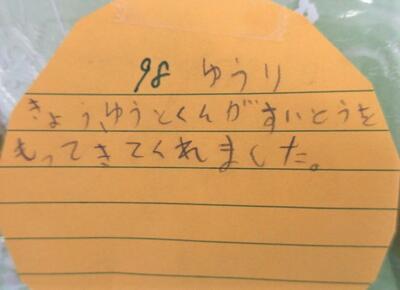 98 ゆうり
きょう、ゆうとくんがすいとうを
もってきてくれました。